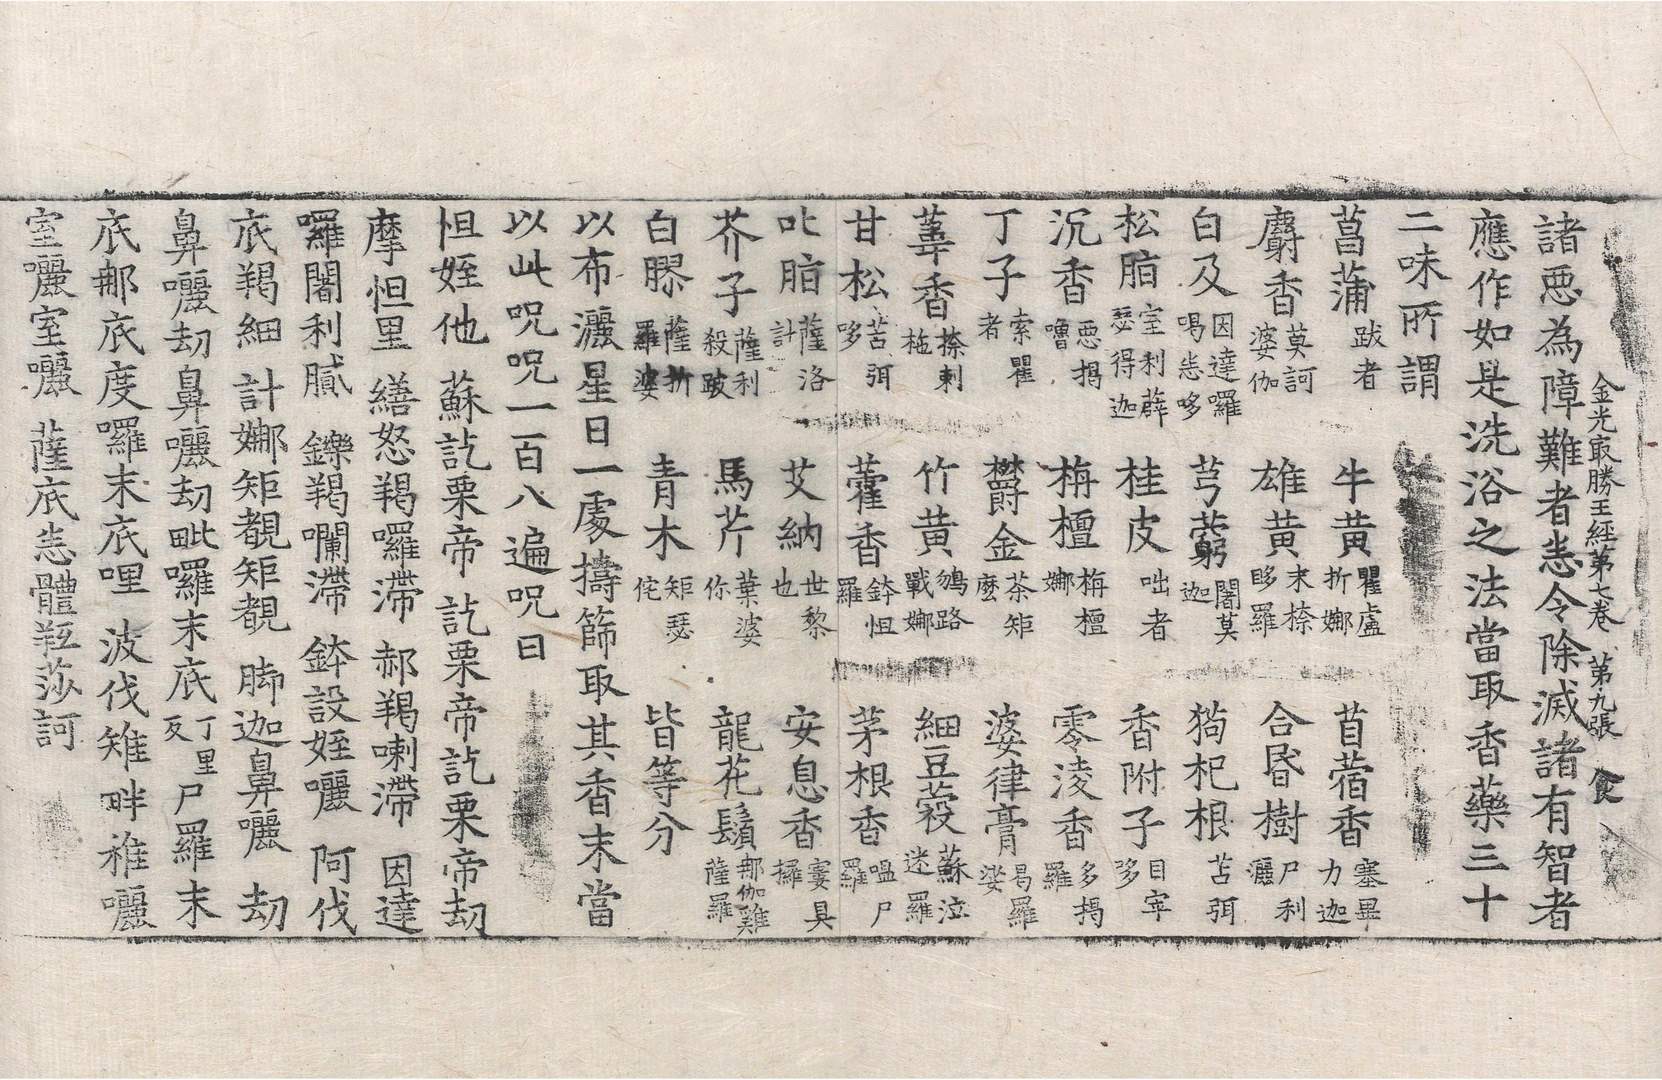 金光㝡勝王經第七卷 第九張 食
諸惡為障難者悉令除滅諸有智者
應作如是洗浴之法當取香藥三十
二味所謂
菖蒲跋者 牛黃瞿盧折娜 苜蓿香塞畢力迦
麝香莫訶婆伽 雄黃末㮈眵羅 合昏樹尸利灑
白及因達羅喝悉哆 芎藭闍莫迦 猫杞根苫弭
松脂室利薜瑟得迦 桂皮咄者 香附子目窣哆
沉香惡揭嚕 栴檀栴檀娜 零淩香多揭羅
丁子索瞿者 欝金茶矩麼 婆律膏曷羅娑
葦香㮈剌柂 竹黃鵮路戰娜 細豆蔲蘇泣迷羅
甘松苫弭哆 藿香鉢怛羅 茅根香嗢尸羅
叱脂薩洛計 艾納世黎也 安息香窶具攞
芥子薩利殺跛 馬芹葉婆你 龍花鬚那伽雞薩羅
白膠薩折羅婆 青木矩瑟侘 皆等分
以布灑星日一處擣篩取其香末當
以此呪呪一百八遍呪曰
怛姪他 蘇訖栗帝 訖栗帝訖栗帝劫
摩怛里 繕怒羯囉滯 郝羯喇滯 因達
囉闍利膩 鑠羯㘓滯 鉢設姪囇 阿伐
底羯細 計娜矩覩矩覩 脚迦鼻囇 劫
鼻囇劫鼻囇劫毗囉末底丁里反尸羅末
底那底度囉末底哩 波伐雉畔稚囇
室囇室囇 薩底悉體羝莎訶